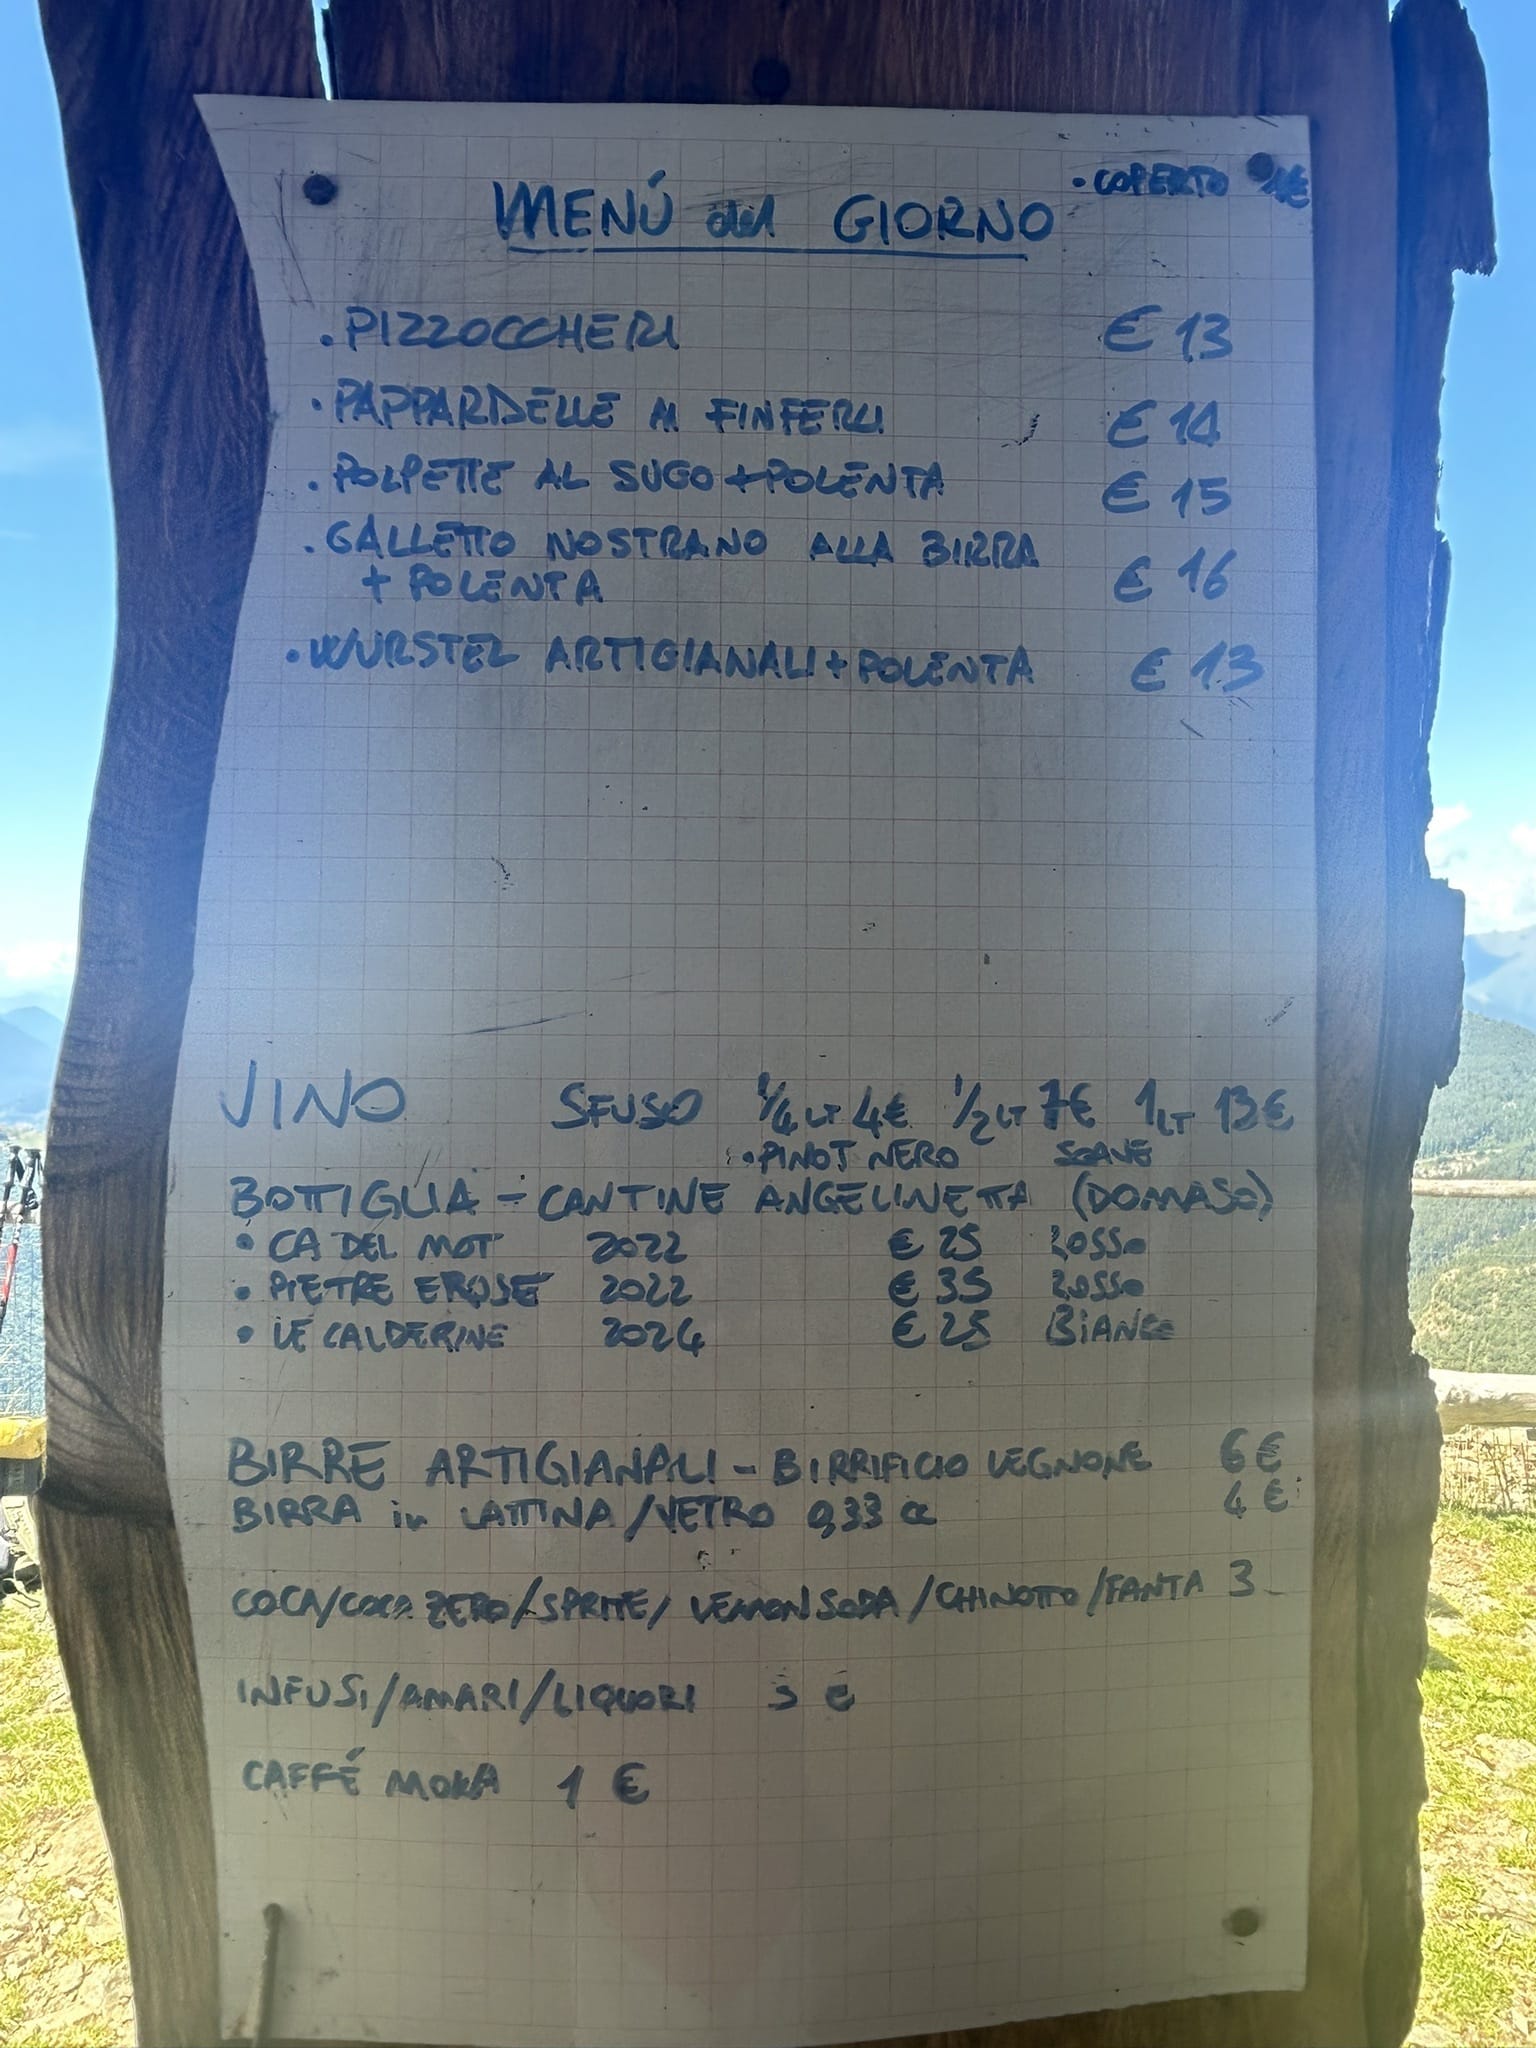 MENÚ del GIORNO
• COPERTO
• PIZZOCCHERI € 13
• PAPPARDELLE AI FINFERLI € 14
• POLPETTE AL SUGO + POLENTA € 15
• GALLETTO NOSTRANO ALLA BIRRA
+ POLENTA € 16
• WURSTEL ARTIGIANALI + POLENTA € 13
VINO SFUSO 1/4 LT 4€ 1/2 LT 7€ 1 LT 13€
• PINOT NERO SOAVE
BOTTIGLIA - CANTINE ANGELINETTA (DOMASO)
• CA DEL MOT 2022 € 25 ROSSO
• PIETRE EROSE 2022 € 35 ROSSO
• LE CALDERINE 2024 € 25 BIANCO
BIRRE ARTIGIANALI - BIRRIFICIO LEGNONE 6€
BIRRA in LATTINA/VETRO 0,33 cl 4€
COCA/COCA ZERO/SPRITE/LEMONSODA/CHINOTTO/FANTA 3
INFUSI/AMARI/LIQUORI 3 €
CAFFÉ MOKA 1 €